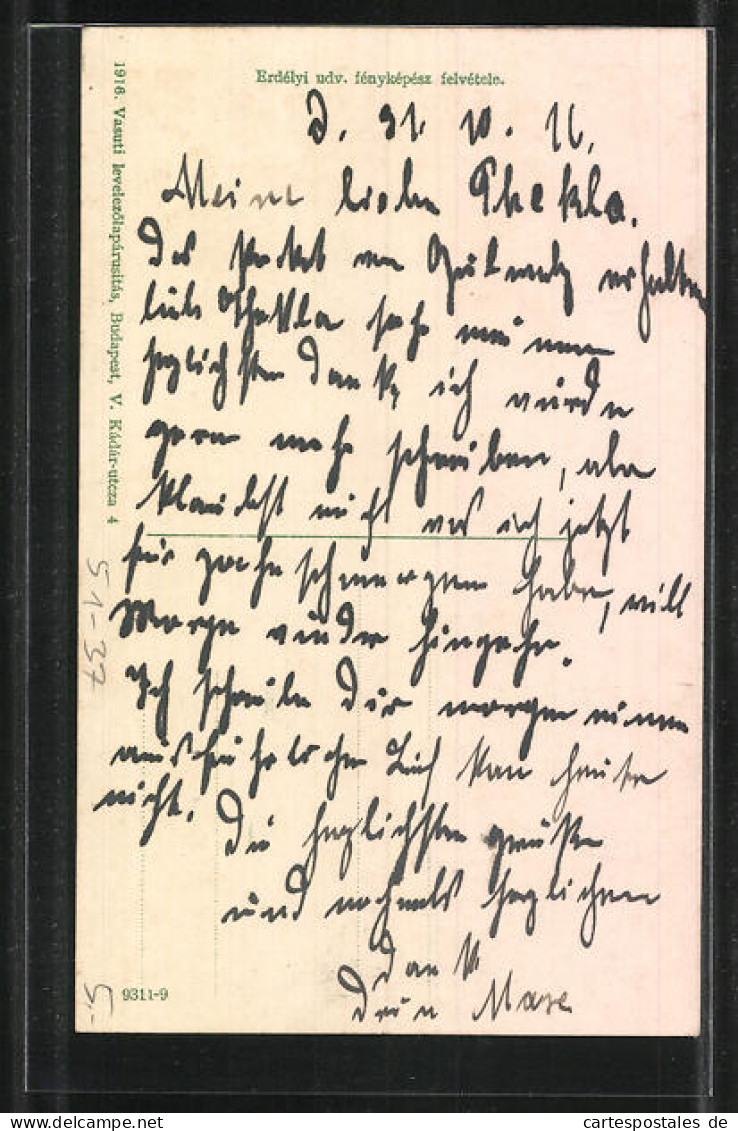 Erdélyi udv. fényképész felvétele.
1916. Vasuti levelezőlapárusitás, Budapest, V. Kádár-utcza 4
D. 31. 10. 16.
Meine liebe Thekla.
Das Packet am erhalten
liebe Thekla sage meinen
herzlichsten Dank, ich würde
gern mehr schreiben, aber
glaubst nicht was ich jetzt
für schmerzen habe, will
Morge wieder hingehe.
Ich schreibe Dir morgen einen
ausführlichen kan heute
nicht.
Die herzlichsten grüße
und nochmals herzlichen
Dank
Dein Maxe
51-37
9311-9